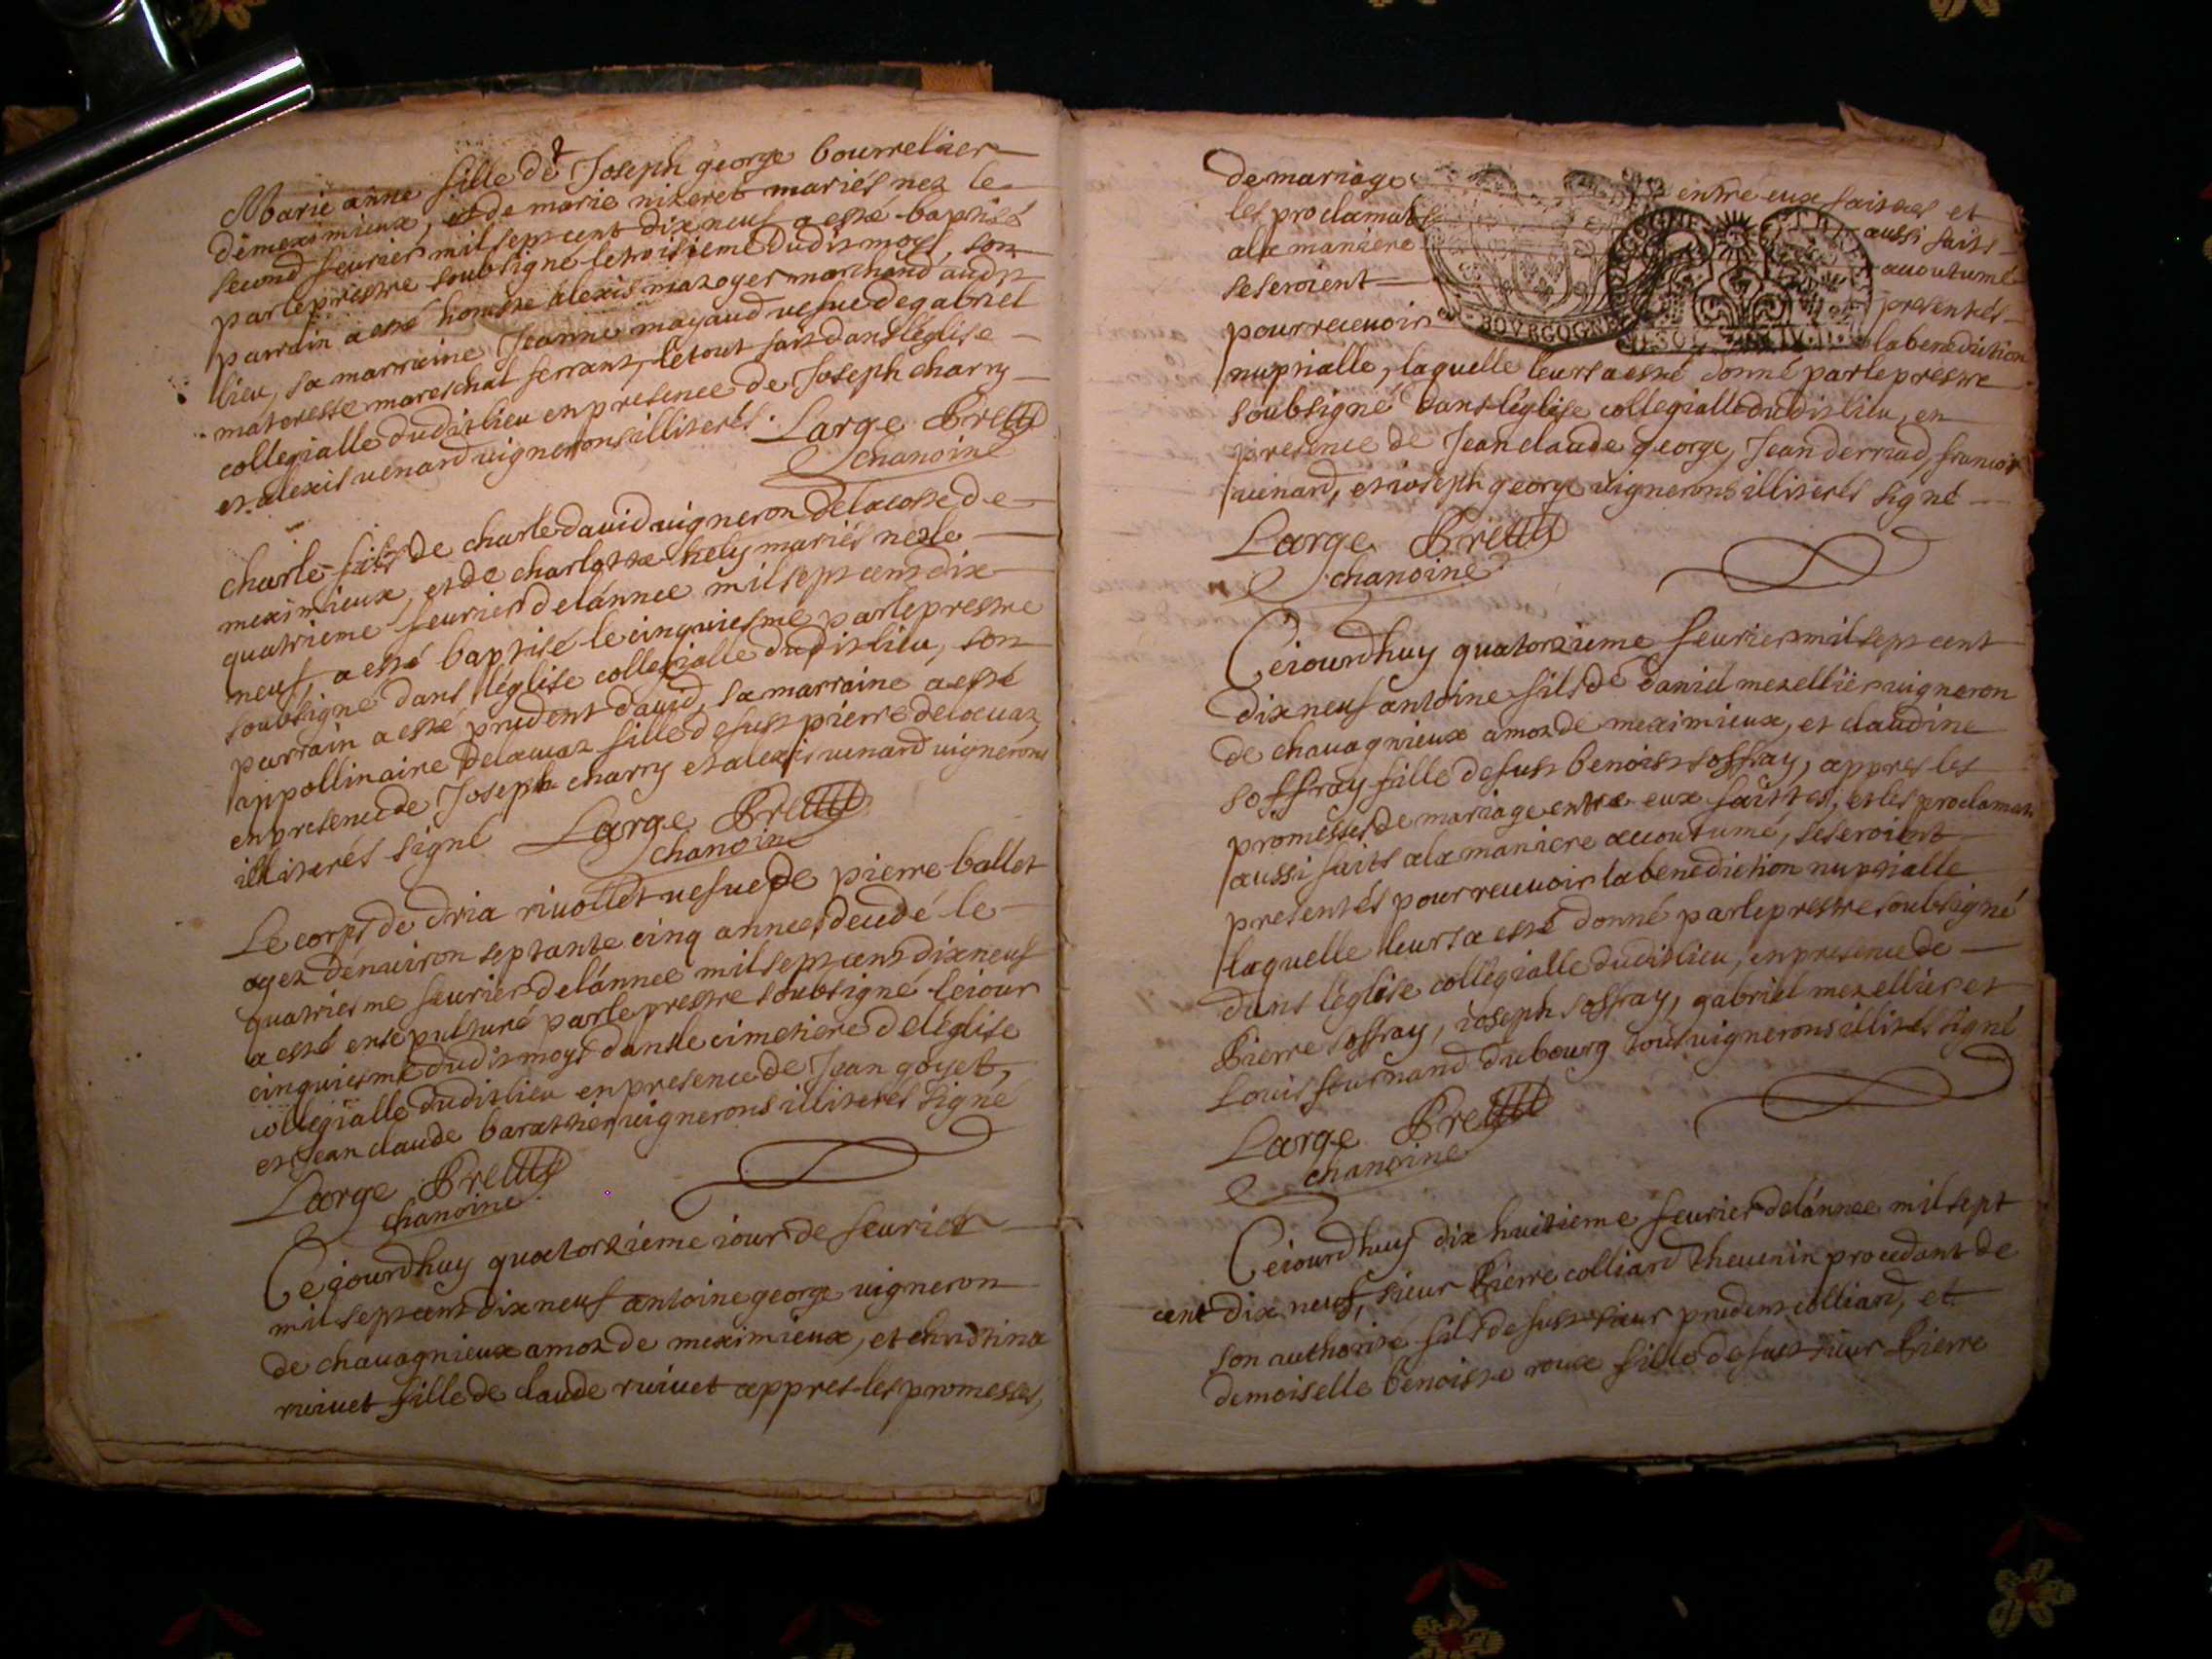 Marie anne fille de Joseph george bourrelier
de meximieux, et de marie nizeret mariés nez le
second feurier mil sept cent dix neuf a esté baptisé
par le prestre soubsigné le troisieme dudit moys, son
parrain a esté honeste alexis mazoyer marchand audit
lieu, sa marraine Jeanne mayaud vefue de gabriel
matoresse mareschal ferrant, le tout fait dans l'église
collegialle dudit lieu en presence de Joseph charry
et alexis venard vignerons illiterés. Large Pretre
chanoine
charle fils de charle dauid vigneron de la coste de
meximieux, et de charlotte hely mariés nez le
quatrieme feurier de l'annee mil sept cent dix
neuf, a esté baptisé le cinquiesme par le prestre
soubsigné dans l'église collegialle dudit lieu, son
parrain a esté prudent dauid, sa marraine a esté
appollinaire delauaz fille de fust pierre delauaz,
en presence de Joseph charry et alexis venard vignerons
illiterés signé Large Pretre
chanoine
Le corps de dria riuollet vefue de pierre ballet
agez d'enuiron septante cinq annees decedé le
quatriesme feurier de l'annee mil sept cent dix neuf
a esté ensepulturé par le prestre soubsigné le iour
cinquiesme dudit moys dans le cimetiere de l'église
collegialle dudit lieu en presence de Jean goyet,
et Jean claude barattier vignerons illiterés signé
Large Pretre
chanoine
Ce iourdhuy quatorzieme iour de feurier
mil sept cent dix neuf antoine george vigneron
de chauagnieux amoz de meximieux, et christina
riuiuet fille de claude riuiuet appres les promesses,
de mariage entre eux faittes et
les proclamats aussi faits
a la maniere accoutumé
se seroient presentés
pour receuoir la benediction
BOVRGOGNE
nuptialle, laquelle leurs a esté donné par le prestre
soubsigné dans l'église collegialle dudit lieu, en
presence de Jean claude george, Jean derriad, francois
vienard, et ioseph george vignerons illiterés signé
Large Pretre
chanoine
Ce iourdhuy quatorzieme feurier mil sept cent
dix neuf antoine fils de daniel mezellier vigneron
de chauagnieux amoz de meximieux, et claudine
soffray fille de fust benoist soffray, appres les
promesses de mariage entre eux faittes, et les proclamats
aussi faits a la maniere accoutumé, se seroient
presentés pour receuoir la benediction nuptialle
laquelle leurs a esté donné par le prestre soubsigné
dans l'église collegialle dudit lieu, en presence de
Pierre soffray, ioseph soffray, gabriel mezellier et
Louis fournand dubourg tous vignerons illités signé
Large Pretre
chanoine
Ce iourdhuy dix huitieme feurier de l'annee mil sept
cent dix neuf, sieur Pierre colliard Theuenin procedant de
son authorité fils de fust sieur prudent colliard, et
demoiselle benoiste roux fille de fust sieur Pierre